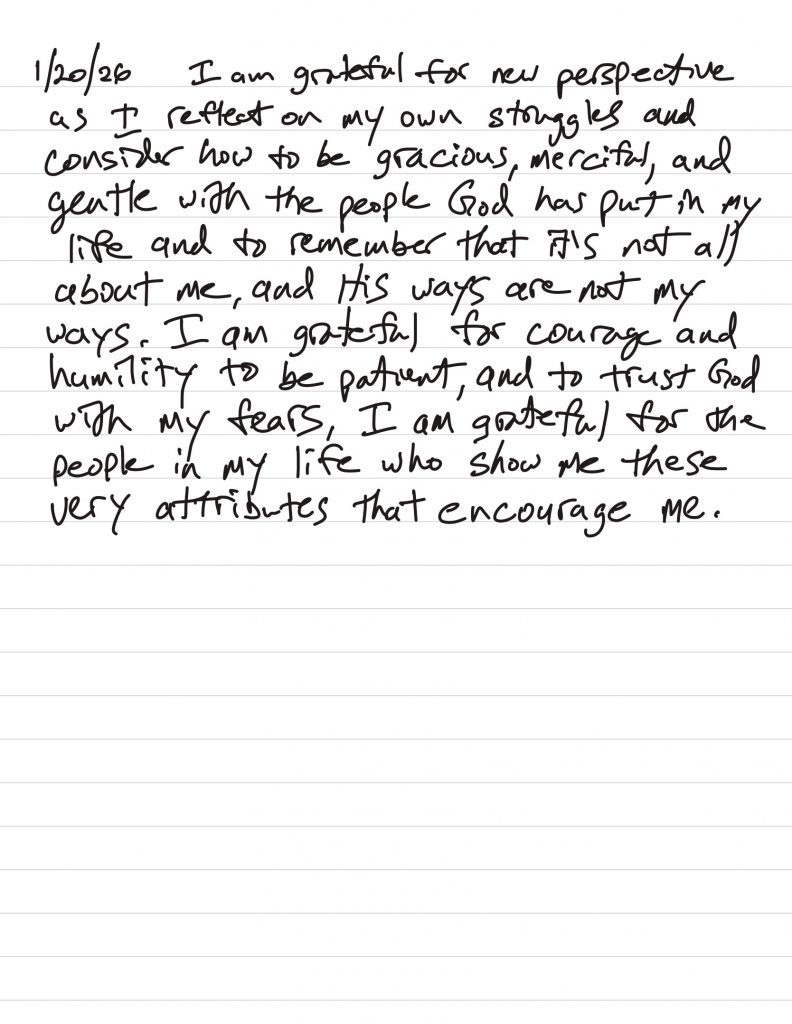 1/20/26 I am grateful for new perspective
as I reflect on my own struggles and
consider how to be gracious, merciful, and
gentle with the people God has put in my
life and to remember that it's not all
about me, and His ways are not my
ways. I am grateful for courage and
humility to be patient, and to trust God
with my fears, I am grateful for the
people in my life who show me these
very attributes that encourage me.